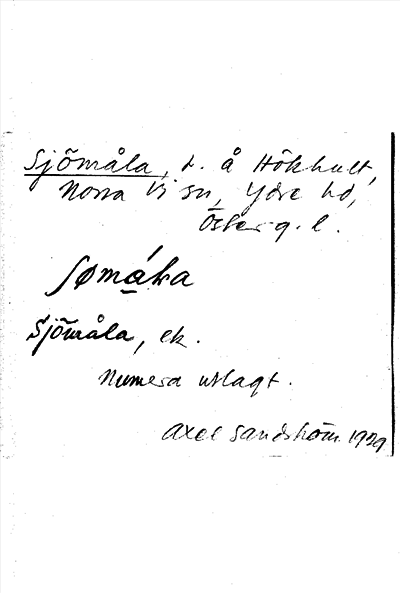 Sjömåla, t. å Hökhult,
Norra Vi sn, Ydre hd,
Österg. l.
Sjömåla, ek.
Numera utlagt.
Axel Sandström 1929